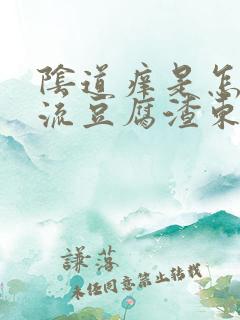 陰道痒是怎
流豆腐渣東
謙落
未經同意禁止轉載